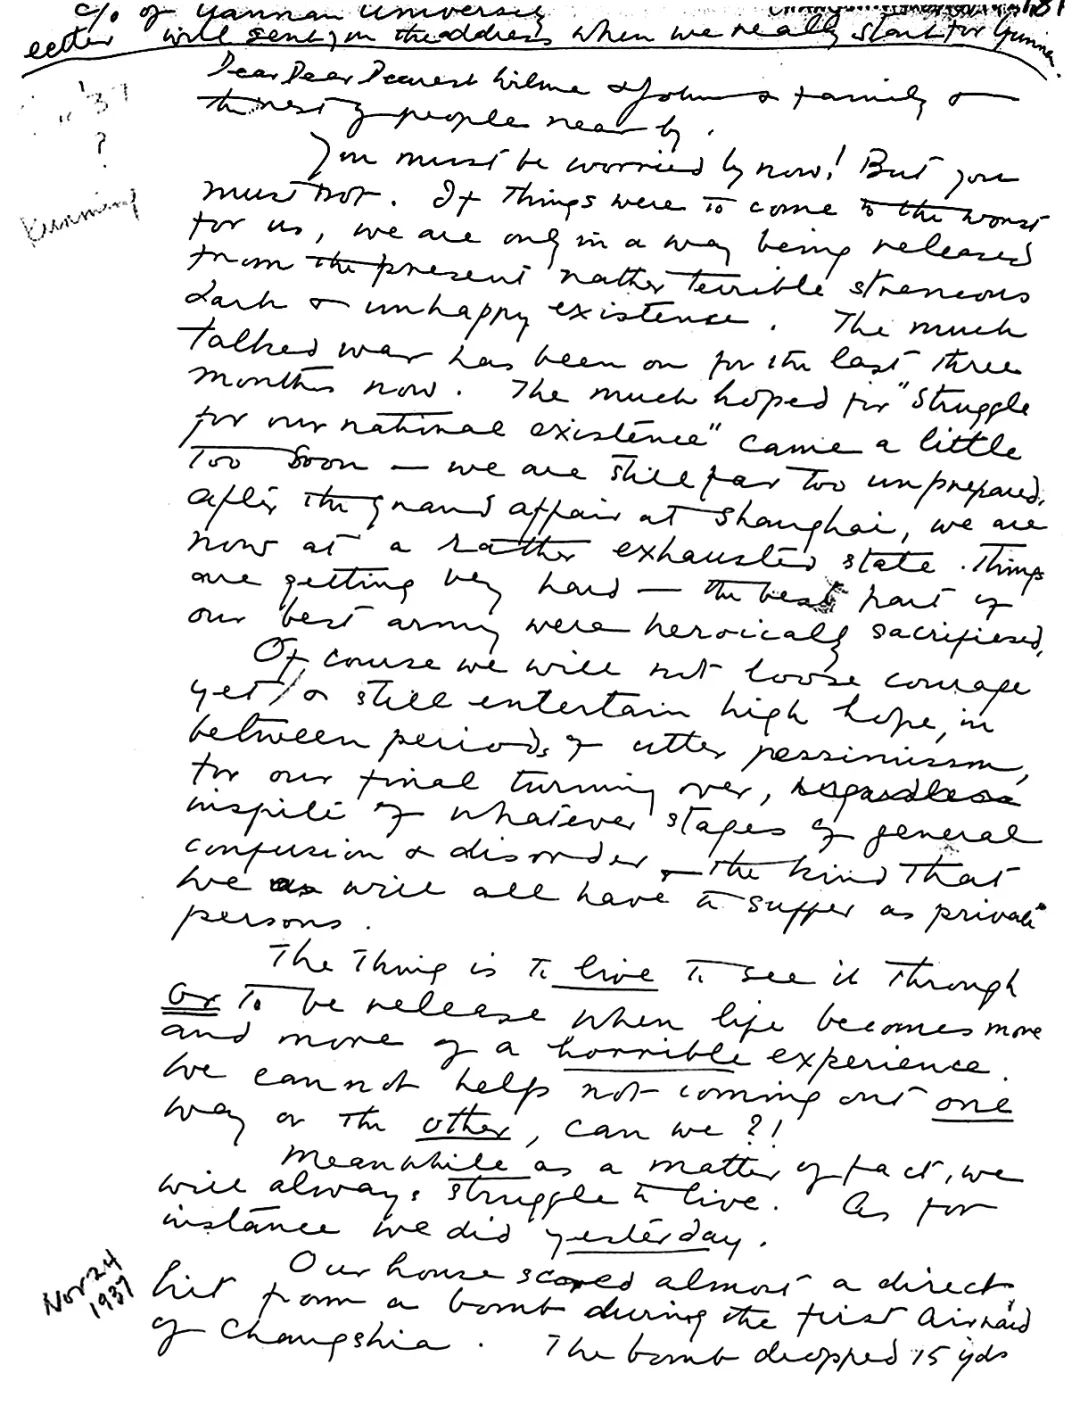 c/o of Yunnan University
letter will sent, on the address when we really start for Yunnan.
'37
?
Kunming
Dear Dear Dearest Wilma & John & family &
the rest of people near by.
You must be worried by now! But you
must not. If things were to come to the worst
for us, we are only in a way being released
from the present rather terrible streneous
dark & unhappy existence. The much
talked war has been on for the last three
months now. The much hoped for "struggle
for our national existence" came a little
too soon — we are still far too unprepared.
After the grand affair at Shanghai, we are
now at a rather exhausted state. Things
are getting very hard — the best part of
our best army were heroically sacrificed.
Of course we will not loose courage
yet, or still entertain high hope, in
between periods of utter pessimism,
for our final turning over, regardless
inspite of whatever stages of general
confusion & disorder & the kind that
we as will all have to suffer as private
persons.
The thing is to live to see it through
or to be release when life becomes more
and more of a horrible experience.
We cannot help not coming out one
way or the other, can we?!
Meanwhile as a matter of fact, we
will always struggle to live. As for
instance we did yesterday.
Nov 24
1937
Our house scored almost a direct
hit from a bomb during the first airraid
of Changshia. The bomb dropped 15 yds